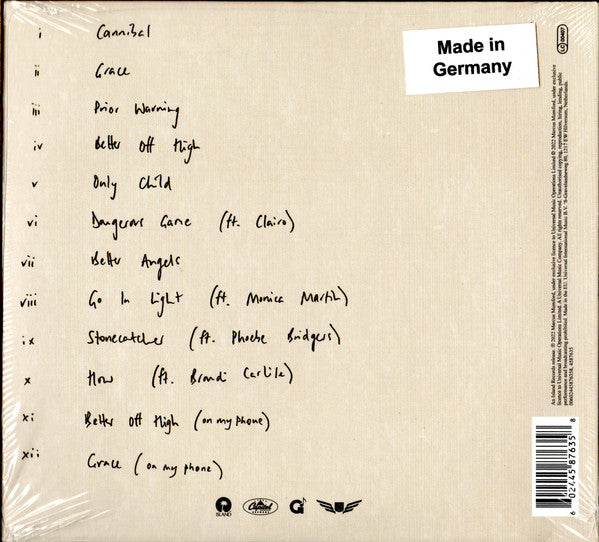 i Cannibal
ii Grace
iii Prior Warning
iv Better Off High
v Only Child
vi Dangerous Game (ft. Clairo)
vii Better Angels
viii Go In Light (ft. Monica Martin)
ix Stonecatcher (ft. Phoebe Bridgers)
x How (ft. Brandi Carlile)
xi Better Off High (on my phone)
xii Grace (on my phone)
Made in
Germany
LC 00407
An Island Records release. ℗ 2022 Marcus Mumford, under exclusive
licence to Universal Music Operations Limited © 2022 Marcus Mumford, under exclusive
licence to Universal Music Operations Limited. A Universal Music Company. All rights reserved. Unauthorized copying, reproduction, hiring, lending, public
performance and broadcasting prohibited. Made in the EU. Universal International Music B.V. 's-Gravelandseweg 80, 1217 EW Hilversum, Netherlands.
00602445876358, 4587635
ISLAND
Capitol
RECORDS
G
6 02445 87635 8